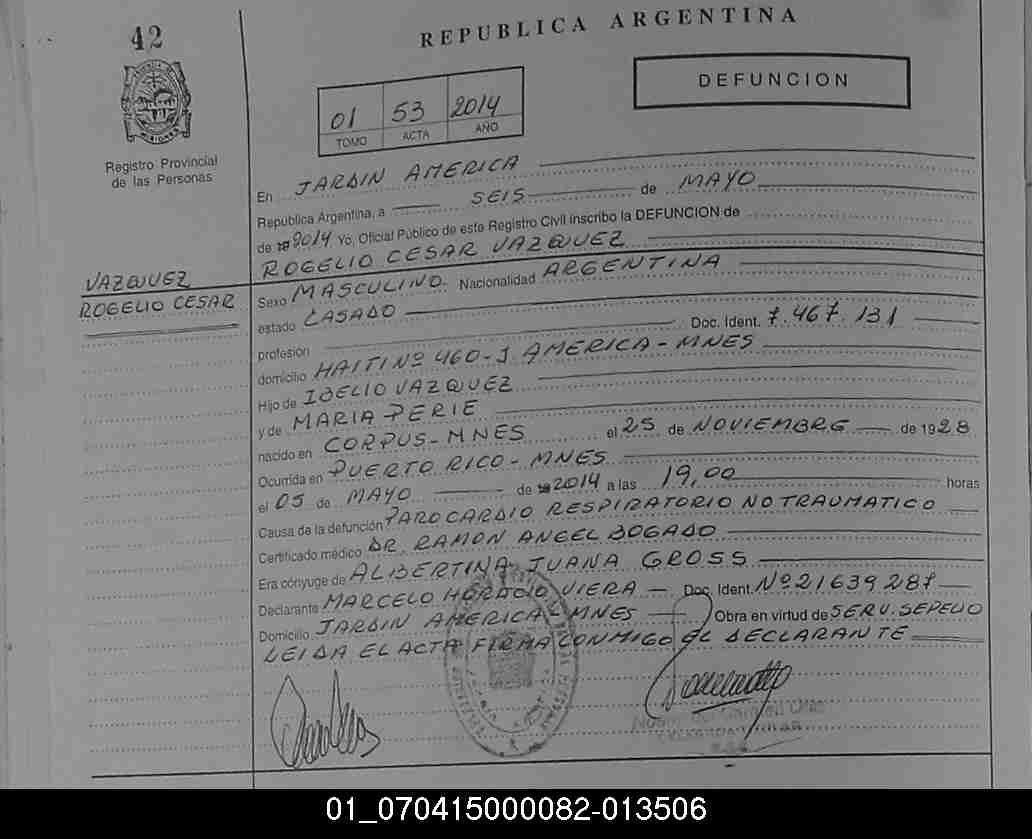 42
REPUBLICA ARGENTINA
DEFUNCION
01 53 2014
TOMO ACTA AÑO
Registro Provincial
de las Personas
En JARDIN AMERICA
República Argentina, a SEIS de MAYO
de 2014 Yo, Oficial Público de este Registro Civil inscribo la DEFUNCION de
ROGELIO CESAR VAZQUEZ
VAZQUEZ
ROGELIO CESAR
Sexo MASCULINO. Nacionalidad ARGENTINA
estado CASADO
profesión Doc. Ident. 7.467.131
domicilio HAITI Nº 460-J AMERICA-MNES
Hijo de IDELIO VAZQUEZ
y de MARIA PERIE
nacido en CORPUS-MNES el 25 de NOVIEMBRE de 1928
Ocurrida en PUERTO RICO-MNES
el 05 de MAYO de 2014 a las 19,00 horas
Causa de la defunción PARO CARDIO RESPIRATORIO NO TRAUMATICO
Certificado médico DR. RAMON ANGEL BOGADO
Era cónyuge de ALBERTINA JUANA GROSS
Declarante MARCELO HORACIO VIERA Doc. Ident. Nº 21639287
Domicilio JARDIN AMERICA-MNES Obra en virtud de SERV. SEPELIO
LEIDA EL ACTA FIRMA CONMIGO EL DECLARANTE
01_070415000082-013506